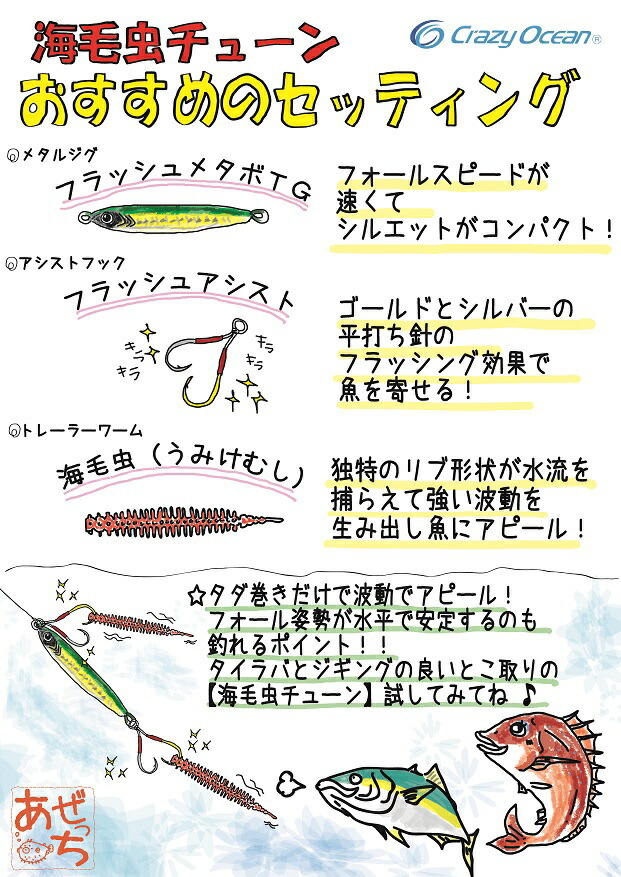 海毛虫チューン
Crazy Ocean®
おすすめのセッティング
◎メタルジグ
フラッシュメタボTG
フォールスピードが
速くて
シルエットがコンパクト!
◎アシストフック
フラッシュアシスト
キラ
キラ
キラ
キラ
ゴールドとシルバーの
平打ち針の
フラッシング効果で
魚を寄せる!
◎トレーラーワーム
海毛虫(うみけむし)
独特のリブ形状が水流を
捕らえて強い波動を
生み出し魚にアピール!
☆タダ巻きだけで波動でアピール!
フォール姿勢が水平で安定するのも
釣れるポイント!!
タイラバとジギングの良いとこ取りの
【海毛虫チューン】試してみてね♪
あぜっち